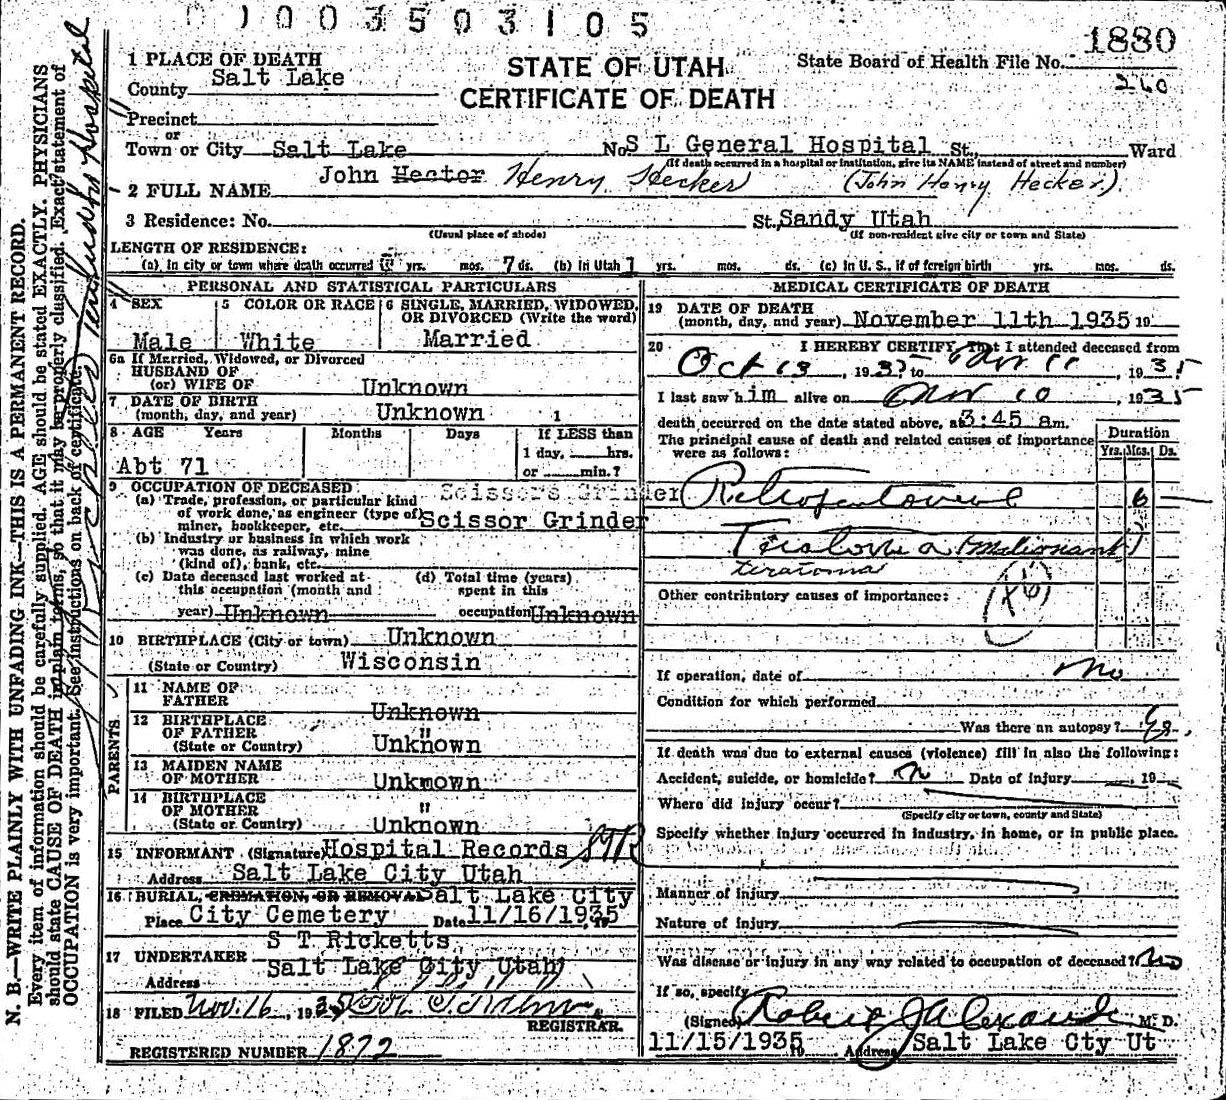 0 0 3 5 0 3 1 0 5
1880
260
1 PLACE OF DEATH
STATE OF UTAH
State Board of Health File No.
County Salt Lake
CERTIFICATE OF DEATH
Precinct
or
Town or City Salt Lake No. S L General Hospital St., Ward
(If death occurred in a hospital or institution, give its NAME instead of street and number)
2 FULL NAME John Hector Henry Hecker (John Henry Hecker)
3 Residence: No. St. Sandy Utah
(Usual place of abode) (If non-resident give city or town and State)
LENGTH OF RESIDENCE:
(a) In city or town where death occurred yrs. mos. 7 ds. (b) In Utah 1 yrs. mos. ds. (c) In U. S., if of foreign birth yrs. mos. ds.
PERSONAL AND STATISTICAL PARTICULARS
4 SEX 5 COLOR OR RACE 6 SINGLE, MARRIED, WIDOWED,
OR DIVORCED (Write the word)
Male White Married
6a If Married, Widowed, or Divorced
HUSBAND OF
(or) WIFE OF Unknown
7 DATE OF BIRTH
(month, day, and year) Unknown 1
8 AGE Years Months Days If LESS than
1 day, hrs.
Abt 71 or min.?
9 OCCUPATION OF DECEASED Scissors Grinder
(a) Trade, profession, or particular kind
of work done, as engineer (type of) Scissor Grinder
miner, bookkeeper, etc.
(b) Industry or business in which work
was done, as railway, mine
(kind of), bank, etc.
(c) Date deceased last worked at (d) Total time (years)
this occupation (month and spent in this
year) Unknown occupation Unknown
10 BIRTHPLACE (City or town) Unknown
(State or Country) Wisconsin
PARENTS
11 NAME OF
FATHER Unknown
12 BIRTHPLACE
OF FATHER "
(State or Country) Unknown
13 MAIDEN NAME
OF MOTHER Unkmown
14 BIRTHPLACE
OF MOTHER "
(State or Country) Unknown
15 INFORMANT (Signature) Hospital Records
Address Salt Lake City Utah
16 BURIAL, CREMATION, OR REMOVAL Salt Lake City
Place City Cemetery Date 11/16/1935, 19
S T Ricketts
17 UNDERTAKER
Address Salt Lake City Utah
18 FILED Nov. 16, 1935
REGISTRAR.
REGISTERED NUMBER 1872
MEDICAL CERTIFICATE OF DEATH
19 DATE OF DEATH
(month, day, and year) November 11th 1935 19
20 I HEREBY CERTIFY, That I attended deceased from
Oct 13, 1935 to Nov 11, 1935
I last saw him alive on Nov 10, 1935
death occurred on the date stated above, at 3:45 am.
The principal cause of death and related causes of importance
were as follows:
Duration
Yrs. Mos. Ds.
6
teratoma
Other contributory causes of importance:
If operation, date of no
Condition for which performed
Was there an autopsy? Yes
If death was due to external causes (violence) fill in also the following:
Accident, suicide, or homicide? Date of injury , 19
Where did injury occur?
(Specify city or town, county and State)
Specify whether injury occurred in industry, in home, or in public place.
Manner of injury
Nature of injury
Was disease or injury in any way related to occupation of deceased? No
If so, specify
(Signed) Robert J Alexander M. D.
11/15/1935 19 Address Salt Lake Cty Ut
N. B.—WRITE PLAINLY WITH UNFADING INK—THIS IS A PERMANENT RECORD.
Every item of information should be carefully supplied. AGE should be stated EXACTLY. PHYSICIANS
should state CAUSE OF DEATH in plain terms, so that it may be properly classified. Exact statement of
OCCUPATION is very important. See instructions on back of certificate.